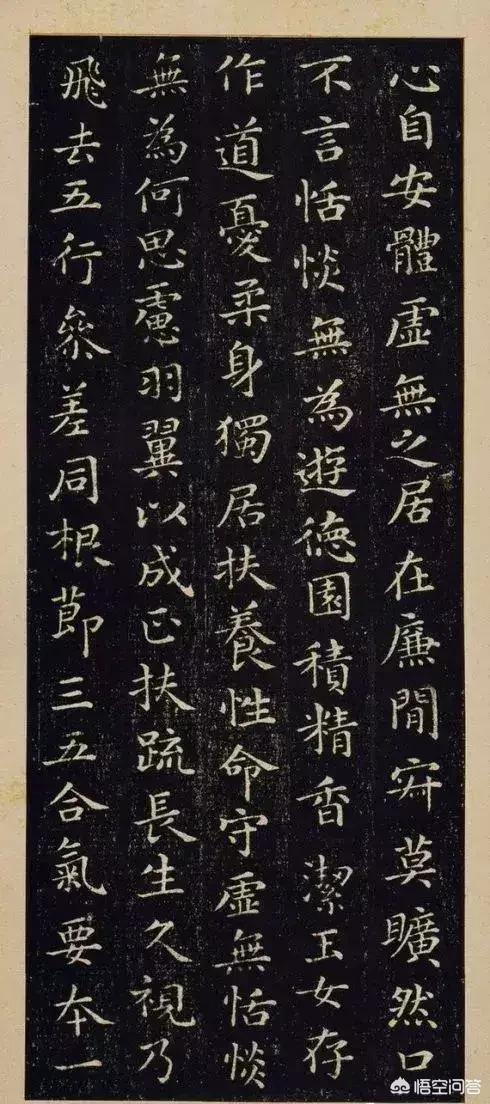 心自安體虛無之居在廉間寂莫曠然口
不言恬惔無為遊德園積精香潔玉女存
作道憂柔身獨居扶養性命守虛無恬惔
無為何思慮羽翼以成正扶疏長生久視乃
飛去五行參差同根節三五合氣要本一
悟空问答